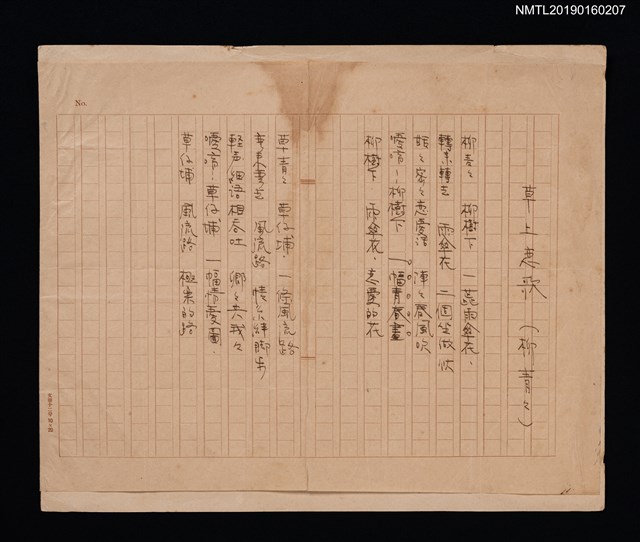 NMTL20190160207
No.
草上恋歌（柳青々）
柳青々 柳樹下 一蕊雨傘花、
轉來轉去 雨傘花 二個坐做伙
綿々密々恋愛話 陣々春風吹
愛唷！柳樹下 一幅青春畫
柳樹下 雨傘花、恋愛的花
草青々 草仔埔、一條風流路
弯來弯去 風流路 情絲絆脚步
軽声細語相吞吐 卿々共我々
愛唷！草仔埔 一幅情愛圖、
草仔埔 風流路 極樂的路